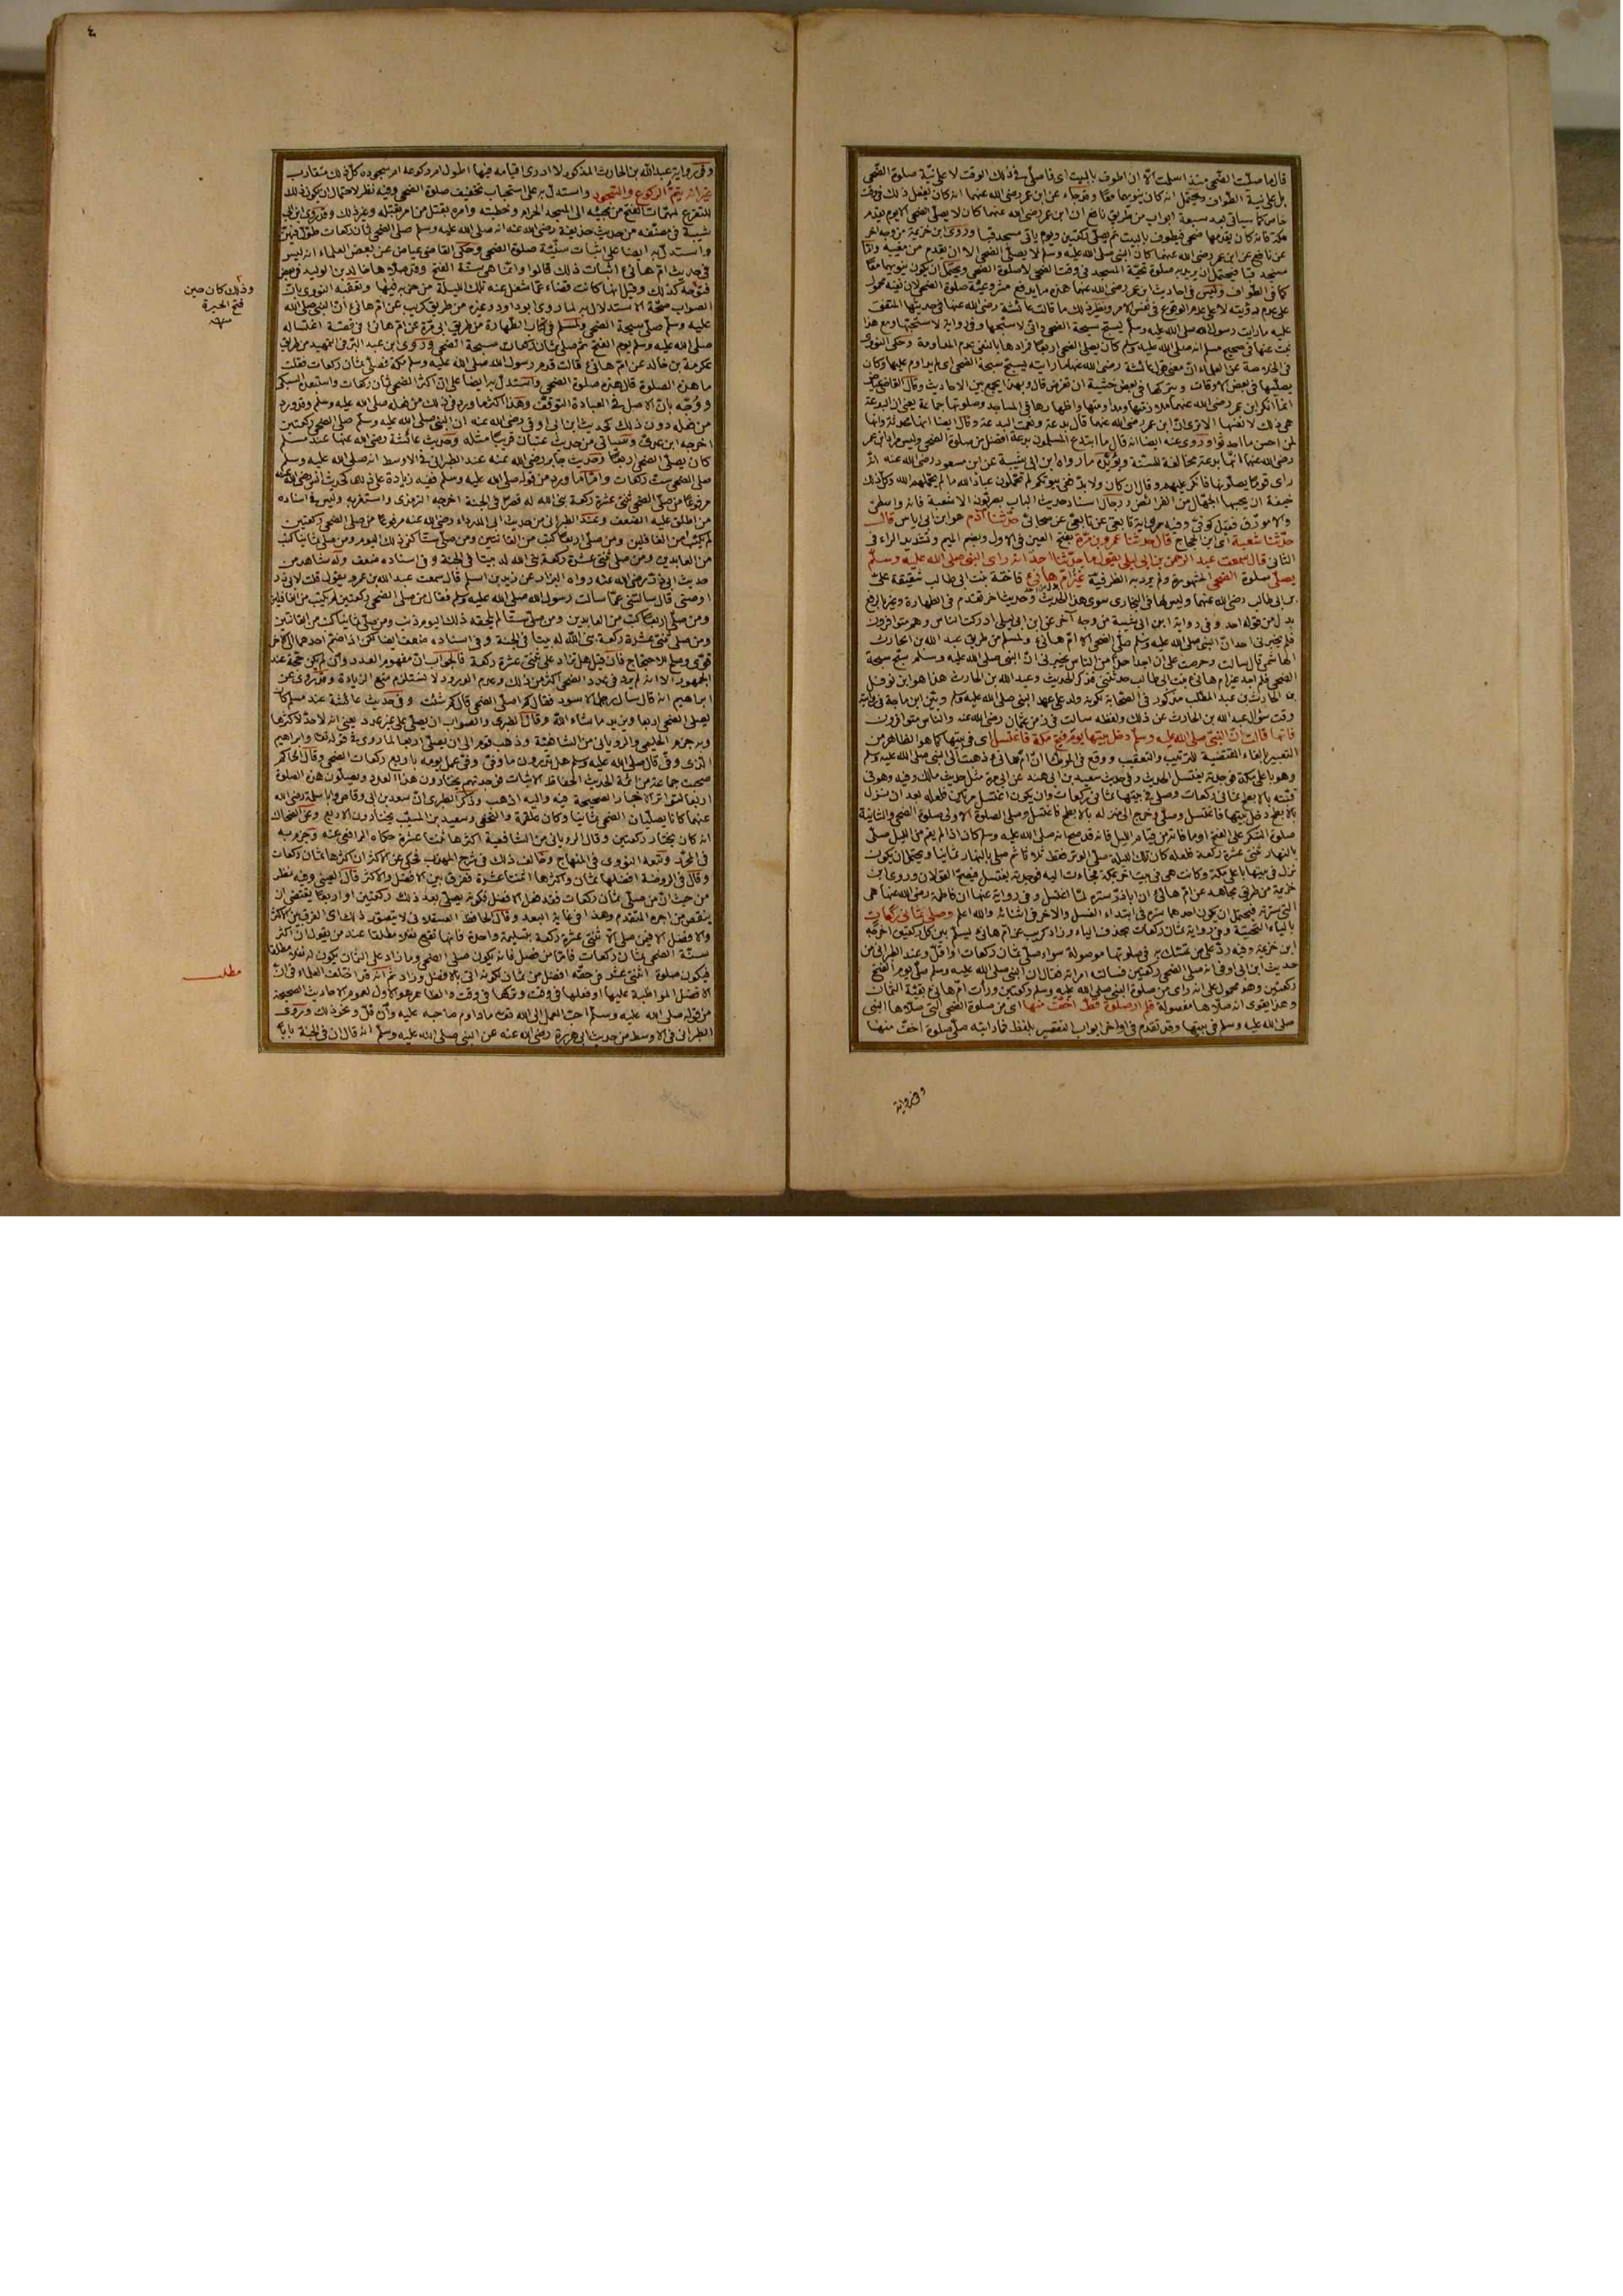 قال ما صليت الضحى منذ اسلمت الا ان اطوف بالبيت اى فاصلى فى ذلك الوقت لا على نية صلوة الضحى
بل على نية الطواف ويحتمل انه كان ينويهما معًا وقد جاء عن ابن عمر رضى الله عنهما انه كان يفعل ذلك فى وقت
خاص كما سياتى بعد سبعة ابواب من طريق نافع ان ابن عمر رضى الله عنهما كان لا يصلى الضحى الا يوم يقدم
مكة فانه كان يقدمها ضحى فيطوف بالبيت ثم يصلى ركعتين ويوم ياتى مسجد قبا وروى ابن خزيمة من وجه اخر
عن نافع عن ابن عمر رضى الله عنهما كان النبى صلى الله عليه وسلم لا يصلى الضحى الا ان يقدم من مغيبه واما
مسجد قبا فيحتمل ان يريد به صلوة تحية المسجد فى وقت الضحى لا صلوة الضحى ويحتمل ان يكون ينويهما معًا
كما فى الطواف وليس فى احاديث ابن عمر رضى الله عنهما هذه ما يدفع مشروعية صلوة الضحى لان نفيه محمول
على عدم رؤيته لا على عدم الوقوع فى نفس الامر ونظير ذلك ما قالت عائشة رضى الله عنها فى حديثها المتفق
عليه ما رايت رسول الله صلى الله عليه وسلم يسبح سبحة الضحى وانى لاسبحها وفى رواية لاستحبها ومع هذا
ثبت عنها فى صحيح مسلم انه صلى الله عليه وسلم كان يصلى الضحى اربعا فمرادها بالنفى عدم المداومة وحكى النووى
فى الخلاصة عن العلماء ان معنى قول عائشة رضى الله عنها ما رايته يسبح سبحة الضحى اى لم يداوم عليها وكان
يصليها فى بعض الاوقات ويتركها فى بعض خشية ان تفرض قال وبهذا يجمع بين الاحاديث وقال القاضى عياض
انما انكر ابن عمر رضى الله عنهما ملازمتها ومداومتها واظهارها فى المساجد وصلوتها جماعة يعنى ان البدعة
هى ذلك لا نفسها الا ترى ان ابن عمر رضى الله عنهما قال بدعة ونعمت البدعة وقال ايضا انها محدثة وانها
لمن احسن ما احدثوا وروى عنه ايضا انه قال ما ابتدع المسلمون بدعة افضل من صلوة الضحى وليس مراد ابن عمر
رضى الله عنهما انها بدعة مخالفة للسنة ويؤيد ما رواه ابن ابى شيبة عن ابن مسعود رضى الله عنه انه
راى قومًا يصلونها فانكر عليهم وقال ان كان ولا بد ففى بيوتكم لم تحملون عباد الله ما لم يحملهم الله وكل ذلك
خيفة ان يحسبها الجهال من الفرائض ورجال اسناد حديث الباب بصريون الا شعبة فانه واسطى
والا مورق فقيل كوفى وفيه رواية تابعى عن تابعى عن صحابى حدثنا آدم هو ابن ابى اياس قال
حدثنا شعبة اى ابن الحجاج قال حدثنا عمرو بن مرة بفتح العين فى الاول وبضم الميم وتشديد الراء فى
الثانى قال سمعت عبد الرحمن بن ابى ليلى يقول ما حدثنا احد انه راى النبى صلى الله عليه وسلم
يصلى صلوة الضحى المشهورة ولم يرد به الظرفية غير ام هانئ فاختة بنت ابى طالب شقيقة على
بن ابى طالب رضى الله عنهما وليس لها فى البخارى سوى هذا الحديث وحديث اخر تقدم فى الطهارة وغير بالرفع
بدل من قوله احد وفى رواية ابن ابى شيبة من وجه آخر عن ابن ابى ليلى ادركت الناس وهم متوافرون
فلم يخبرنى احد ان النبى صلى الله عليه وسلم صلى الضحى الا ام هانئ ولمسلم من طريق عبد الله بن الحارث
الهاشمى قال سالت وحرصت على ان اجد احدًا من الناس يخبرنى ان النبى صلى الله عليه وسلم سبح سبحة
الضحى فلم اجد غير ام هانئ بنت ابى طالب حدثتنى فذكر الحديث وعبد الله بن الحارث هذا هو ابن نوفل
بن الحارث بن عبد المطلب مذكور فى الصحابة لكونه ولد على عهد النبى صلى الله عليه وسلم وبين ابن ماجة فى روايته
وقت سؤال عبد الله بن الحارث عن ذلك ولفظه سالت فى زمن عثمان رضى الله عنه والناس متوافرون
فانها قالت ان النبى صلى الله عليه وسلم دخل بيتها يوم فتح مكة فاغتسل اى فى بيتها كما هو الظاهر من
التعبير بالفاء المقتضية للترتيب والتعقيب ووقع فى الموطا ان ام هانئ ذهبت الى النبى صلى الله عليه وسلم
وهو باعلى مكة فوجدته يغتسل الحديث وفى حديث سعيد بن ابى هند عن ابى مرة مثل حديث مالك وفيه وهو فى
قبته بالابطح ثمانى ركعات وصلى فى بيتها ثمانى ركعات وان يكون اغتسل مرتين فلعله بعد ان نزل
بالابطح دخل بيتها فاغتسل وصلى وخرج الى منزله بالابطح فاغتسل وصلى الصلوة الاولى صلوة الضحى والثانية
صلوة الشكر على الفتح او ما فاته من قيام الليل فانه قد صح انه صلى الله عليه وسلم كان اذا لم يقم من الليل صلى
بالنهار ثنتى عشرة ركعة فلعله كان تلك الليلة صلى الوتر فقط ثلاثا ثم صلى بالنهار ثمانيا ويحتمل ان يكون
نزل فى بيتها باعلى مكة وكانت هى فى بيت اخر بمكة فجاءت اليه فوجدته يغتسل فيصح القولان وروى ابن
خزيمة من طريق مجاهد عن ام هانئ ان اباذر ستره لما اغتسل وفى رواية عنها ان فاطمة رضى الله عنها هى
التى سترته فيحتمل ان يكون احدهما ستره فى ابتداء الغسل والاخر فى اثنائه والله اعلم وصلى ثمانى ركعات
بالياء التحتية وفى رواية ثمان ركعات بحذف الياء وزاد كريب عن ام هانئ يسلم بين كل ركعتين اخرجه
ابن خزيمة وفيه رد على من تمسك به فى صلوتها موصولة سواء صلى ثمان ركعات او اقل وعند الطبرانى من
حديث ابن ابى اوفى انه صلى الضحى ركعتين فسالته امراته فقال ان النبى صلى الله عليه وسلم صلى يوم الفتح
ركعتين وهو محمول على انه راى من صلوة النبى صلى الله عليه وسلم ركعتين ورات ام هانئ بقية الثمان
وهذا يقوى انه صلاها مفصولة فلم ار صلوة قط اخف منها اى من صلوة الضحى التى صلاها النبى
صلى الله عليه وسلم فى بيتها وقد تقدم فى اواخر ابواب التقصير بلفظ فما رايته صلى صلوة اخف منها
وفى رواية
٤
وفى رواية عبد الله بن الحارث المذكور لا ادرى اقيامه فيها اطول ام ركوعه ام سجوده كل ذلك متقارب
غير انه يتم الركوع والسجود واستدل به على استحباب تخفيف صلوة الضحى وفيه نظر لاحتمال ان يكون ذلك
للتفرغ لمهمات الفتح من مجيئه الى المسجد الحرام وخطبته وامره بقتل من امر بقتله وغير ذلك وقد روى ابن ابى
شيبة فى مصنفه من حديث حذيفة رضى الله عنه انه صلى الله عليه وسلم صلى الضحى ثمان ركعات طول فيهن
واستدل به ايضا على اثبات سنية صلوة الضحى وحكى القاضى عياض عن بعض العلماء انه ليس
فى حديث ام هانئ اثبات ذلك قالوا وانما هى سنة الفتح وقد صلاها خالد بن الوليد فى بعض
فتوحه كذلك وقيل انها كانت قضاء عما شغل عنه تلك الليلة من حزبه فيها وتعقبه النووى بان
الصواب صحة الاستدلال به لما روى ابو داود وغيره من طريق كريب عن ام هانئ ان النبى صلى الله
عليه وسلم صلى سبحة الضحى ولمسلم فى كتاب الطهارة من طريق ابى مرة عن ام هانئ فى قصة اغتساله
صلى الله عليه وسلم يوم الفتح ثم صلى ثمان ركعات سبحة الضحى وروى ابن عبد البر فى التمهيد من طريق
عكرمة بن خالد عن ام هانئ قالت قدم رسول الله صلى الله عليه وسلم مكة فصلى ثمان ركعات فقلت
ما هذه الصلوة قال هذه صلوة الضحى واستدل به ايضا على ان اكثر الضحى ثمان ركعات واستبعده السبكى
ووجه بان الاصل فى العبادة التوقف وهذا اكثر ما ورد فى ذلك من فعله صلى الله عليه وسلم وقد ورد
من فعله دون ذلك كحديث ابن ابى اوفى رضى الله عنه ان النبى صلى الله عليه وسلم صلى الضحى ركعتين
اخرجه ابن عدى وسياتى من حديث عتبان قريبًا مثله وحديث عائشة رضى الله عنها عند مسلم
كان يصلى الضحى اربعًا وحديث جابر رضى الله عنه عند الطبرانى فى الاوسط انه صلى الله عليه وسلم
صلى الضحى ست ركعات واما ما ورد من قوله صلى الله عليه وسلم ففيه زيادة على ذلك كحديث انس رضى الله عنه
مرفوعًا من صلى الضحى ثنتى عشرة ركعة بنى الله له قصرًا فى الجنة اخرجه الترمذى واستغربه وليس فى اسناده
من اطلق عليه الضعف وعند الطبرانى من حديث ابى الدرداء رضى الله عنه مرفوعًا من صلى الضحى ركعتين
لم يكتب من الغافلين ومن صلى اربعًا كتب من القانتين ومن صلى ستا كفى ذلك اليوم ومن صلى ثمانيا كتب
من العابدين ومن صلى ثنتى عشرة ركعة بنى الله له بيتا فى الجنة وفى اسناده ضعف وله شاهد من
حديث ابى ذر رضى الله عنه رواه البزار عن زيد بن اسلم قال سمعت عبد الله بن عمرو يقول قلت لابى ذر
اوصنى قال سالتنى عما سالت رسول الله صلى الله عليه وسلم فقال من صلى الضحى ركعتين لم يكتب من الغافلين
ومن صلى اربعًا كتب من العابدين ومن صلى ستا لم يلحقه ذلك اليوم ذنب ومن صلى ثمانيا كتب من القانتين
ومن صلى ثنتى عشرة ركعة بنى الله له بيتا فى الجنة وفى اسناده ضعف ايضا لكن اذا ضم احدهما الى الاخر
قوى وصلح للاحتجاج فان قيل هل تزاد على ثنتى عشرة ركعة فالجواب ان مفهوم العدد وان لم يكن حجة عند
الجمهور الا انه لم يرد فى عدد الضحى اكثر من ذلك وعدم الورود لا يستلزم منع الزيادة وقد روى عن
ابراهيم انه قال سال رجل الاسود فقال كم اصلى الضحى قال كم شئت وفى حديث عائشة عند مسلم كان
يصلى الضحى اربعا ويزيد ما شاء الله وقال الطبرى والصواب ان يصلى على غير عدد يعنى انه لا حد لاكثرها
وبه جزم الحليمى والرويانى من الشافعية وذهب قوم الى ان يصلى اربعا لما روى فى قوله تعالى وابراهيم
الذى وفى قال صلى الله عليه وسلم هل تدرون ما وفى وفى عمل يومه باربع ركعات الضحى وقال الحاكم
صحبت جماعة من ائمة الحديث الحفاظ الاثبات فوجدتهم يختارون هذا العدد ويصلون هذه الصلوة
اربعا لتواتر الاخبار الصحيحة فيه واليه اذهب وذكر الطبرى ان سعد بن ابى وقاص وام سلمة رضى الله
عنهما كانا يصليان الضحى ثمانيا وكان علقمة والنخعى وسعيد بن المسيب يختارون الاربع وعن الضحاك
انه كان يختار ركعتين وقال الرويانى من الشافعية اكثرها ثنتا عشرة حكاه الرافعى عنه وجزم به
فى المحرر وتبعه النووى فى المنهاج وخالف ذلك فى شرح المهذب فحكى عن الاكثر ان اكثرها ثمان ركعات
وقال فى الروضة افضلها ثمان واكثرها اثنتا عشرة ففرق بين الافضل والاكثر قال العينى وفيه نظر
من حيث ان من صلى ثمان ركعات فقد فعل الافضل فكونه يصلى بعد ذلك ركعتين او اربعًا يقتضى ان
ينقص من اجره المتقدم وهذا فى غاية البعد وقال الحافظ العسقلانى لا يتصور ذلك اى الفرق بين الاكثر
والافضل الا فيمن صلى ثنتى عشرة ركعة بتسليمة واحدة فانها تقع نفلا مطلقا عند من يقول ان اكثر
سنة الضحى ثمان ركعات فاما من فصل فانه يكون صلى الضحى وما زاد على الثمان يكون له نفلا مطلقا
فيكون صلوة اثنتى عشر فى حقه افضل من ثمان لكونه اتى بالافضل وزاد ثم انه قد اختلف العلماء فى ان
الافضل المواظبة عليها او فعلها فى وقت وتركها فى وقت والظاهر هو الاول لعموم الاحاديث الصحيحة
من قوله صلى الله عليه وسلم احب العمل الى الله تعالى ما داوم صاحبه عليه وان قل ونحو ذلك وروى
الطبرانى فى الاوسط من حديث ابى هريرة رضى الله عنه عن النبى صلى الله عليه وسلم انه قال ان فى الجنة بابًا
وذلك كان حين
فتح الحيرة
مطلب